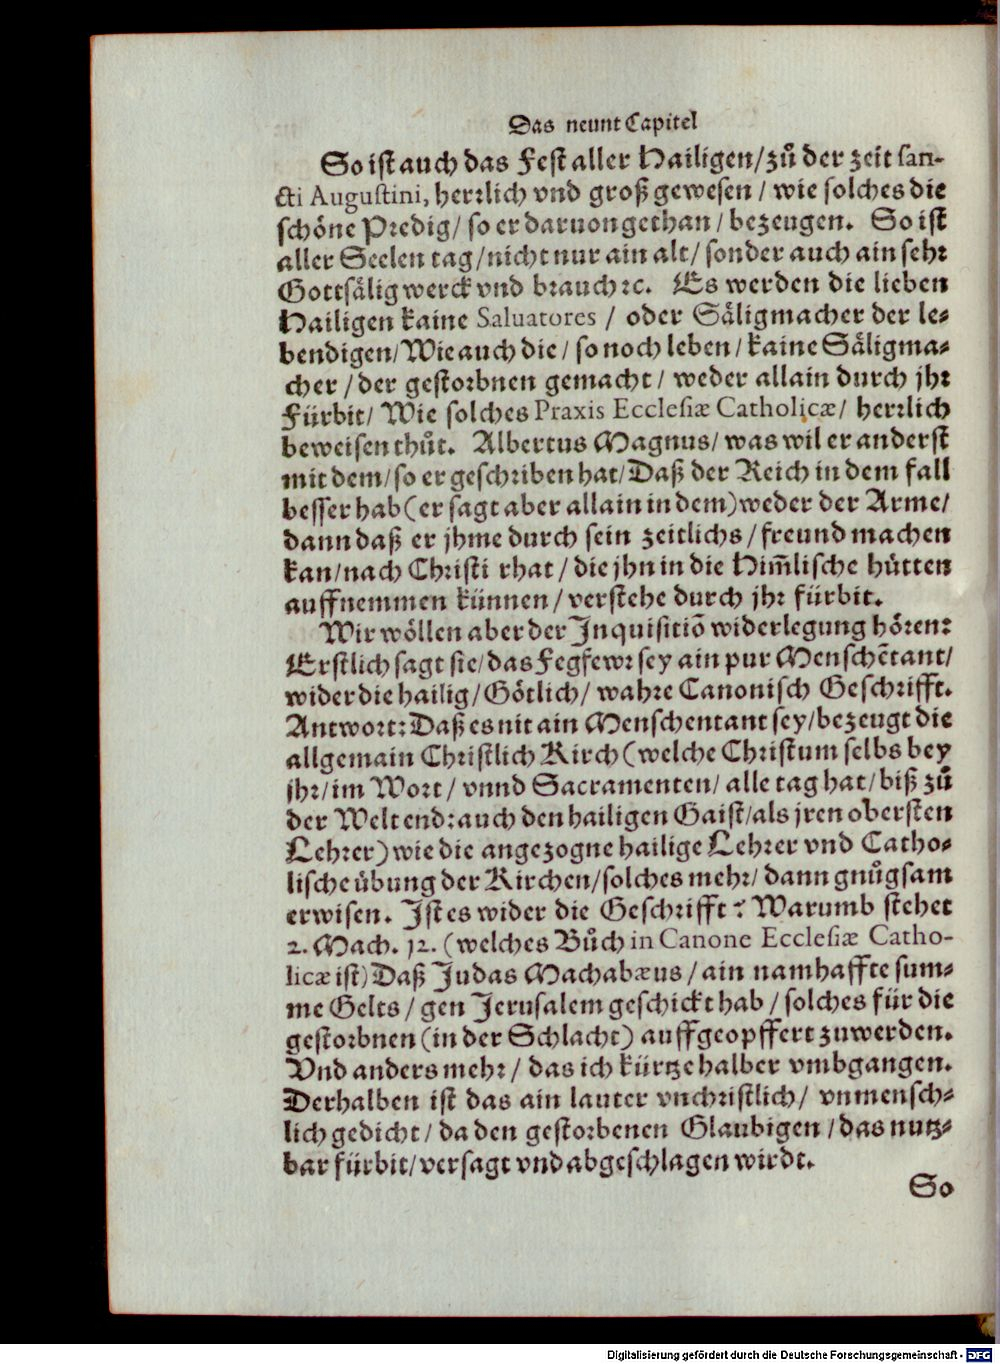 Das neunt Capitel
So ist auch das Fest aller Hailigen/zů der zeit san-
cti Augustini, herꝛlich vnd groß gewesen / wie solches die
schöne Pꝛedig/ so er daruon gethan / bezeugen. So ist
aller Seelen tag/nicht nur ain alt/ sonder auch ain sehꝛ
Gottsälig werck vnd bꝛauch ꝛc. Es werden die lieben
Hailigen kaine Saluatores / oder Säligmacher der le⸗
bendigen/Wie auch die / so noch leben / kaine Säligma⸗
cher / der gestoꝛbnen gemacht / weder allain durch jhꝛ
Fürbit/ Wie solches Praxis Ecclesiæ Catholicæ/ herꝛlich
beweisen thůt. Albertus Magnus/ was wil er anderst
mit dem/ so er geschꝛiben hat/Daß der Reich in dem fall
besser hab (er sagt aber allain in dem) weder der Arme/
dann daß er jhme durch sein zeitlichs / freund machen
kan/nach Christi rhat / die jhn in die Him̃lische hütten
auffnemmen künnen / verstehe durch jhꝛ fürbit.
Wir wöllen aber der Inquisitiõ widerlegung höꝛen:
Erstlich sagt sie/ das Fegfewꝛ sey ain pur Menschẽtant/
wider die hailig/Götlich/ wahꝛe Canonisch Geschꝛifft.
Antwoꝛt: Daß es nit ain Menschentant sey/bezeugt die
allgemain Christlich Kirch (welche Christum selbs bey
jhꝛ/im Woꝛt / vnnd Sacramenten/ alle tag hat/ biß zů
der Welt end: auch den hailigen Gaist/als jren obersten
Lehꝛer) wie die angezogne hailige Lehꝛer vnd Catho⸗
lische übung der Kirchen/solches mehꝛ/ dann gnůgsam
erwisen. Ist es wider die Geschꝛifft? Warumb stehet
2. Mach. 12. (welches Bůch in Canone Ecclesiæ Catho-
licæ ist) Daß Judas Machabæus / ain namhaffte sum⸗
me Gelts / gen Jerusalem geschickt hab / solches für die
gestoꝛbnen (in der Schlacht) auffgeopffert zuwerden.
Vnd anders mehꝛ / das ich kürtze halber vmbgangen.
Derhalben ist das ain lauter vnchꝛistlich/ vnmensch⸗
lich gedicht / da den gestoꝛbenen Glaubigen / das nutz⸗
bar fürbit/ versagt vnd abgeschlagen wirdt.
So
Digitalisierung gefördert durch die Deutsche Forschungsgemeinschaft - DFG